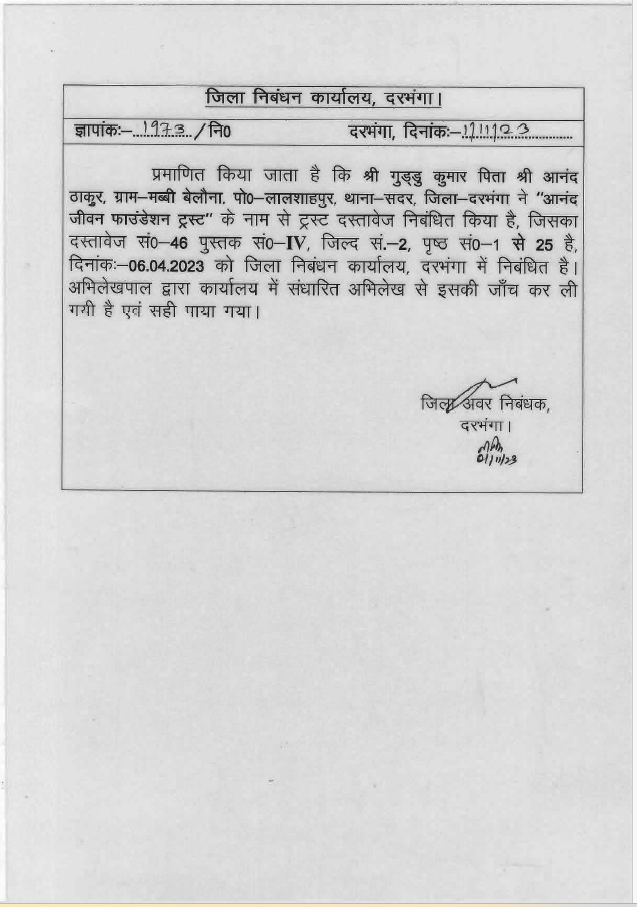 जिला निबंधन कार्यालय, दरभंगा।
ज्ञापांकः–...1973.../नि0 दरभंगा, दिनांकः–1/11/23
प्रमाणित किया जाता है कि श्री गुड्डु कुमार पिता श्री आनंद
ठाकुर, ग्राम–मब्बी बेलौना, पो0–लालशाहपुर, थाना–सदर, जिला–दरभंगा ने "आनंद
जीवन फाउंडेशन ट्रस्ट" के नाम से ट्रस्ट दस्तावेज निबंधित किया है, जिसका
दस्तावेज सं0–46 पुस्तक सं0–IV, जिल्द सं.–2, पृष्ठ सं0–1 से 25 है,
दिनांकः–06.04.2023 को जिला निबंधन कार्यालय, दरभंगा में निबंधित है।
अभिलेखपाल द्वारा कार्यालय में संधारित अभिलेख से इसकी जाँच कर ली
गयी है एवं सही पाया गया।
जिला अवर निबंधक,
दरभंगा।
01/11/23